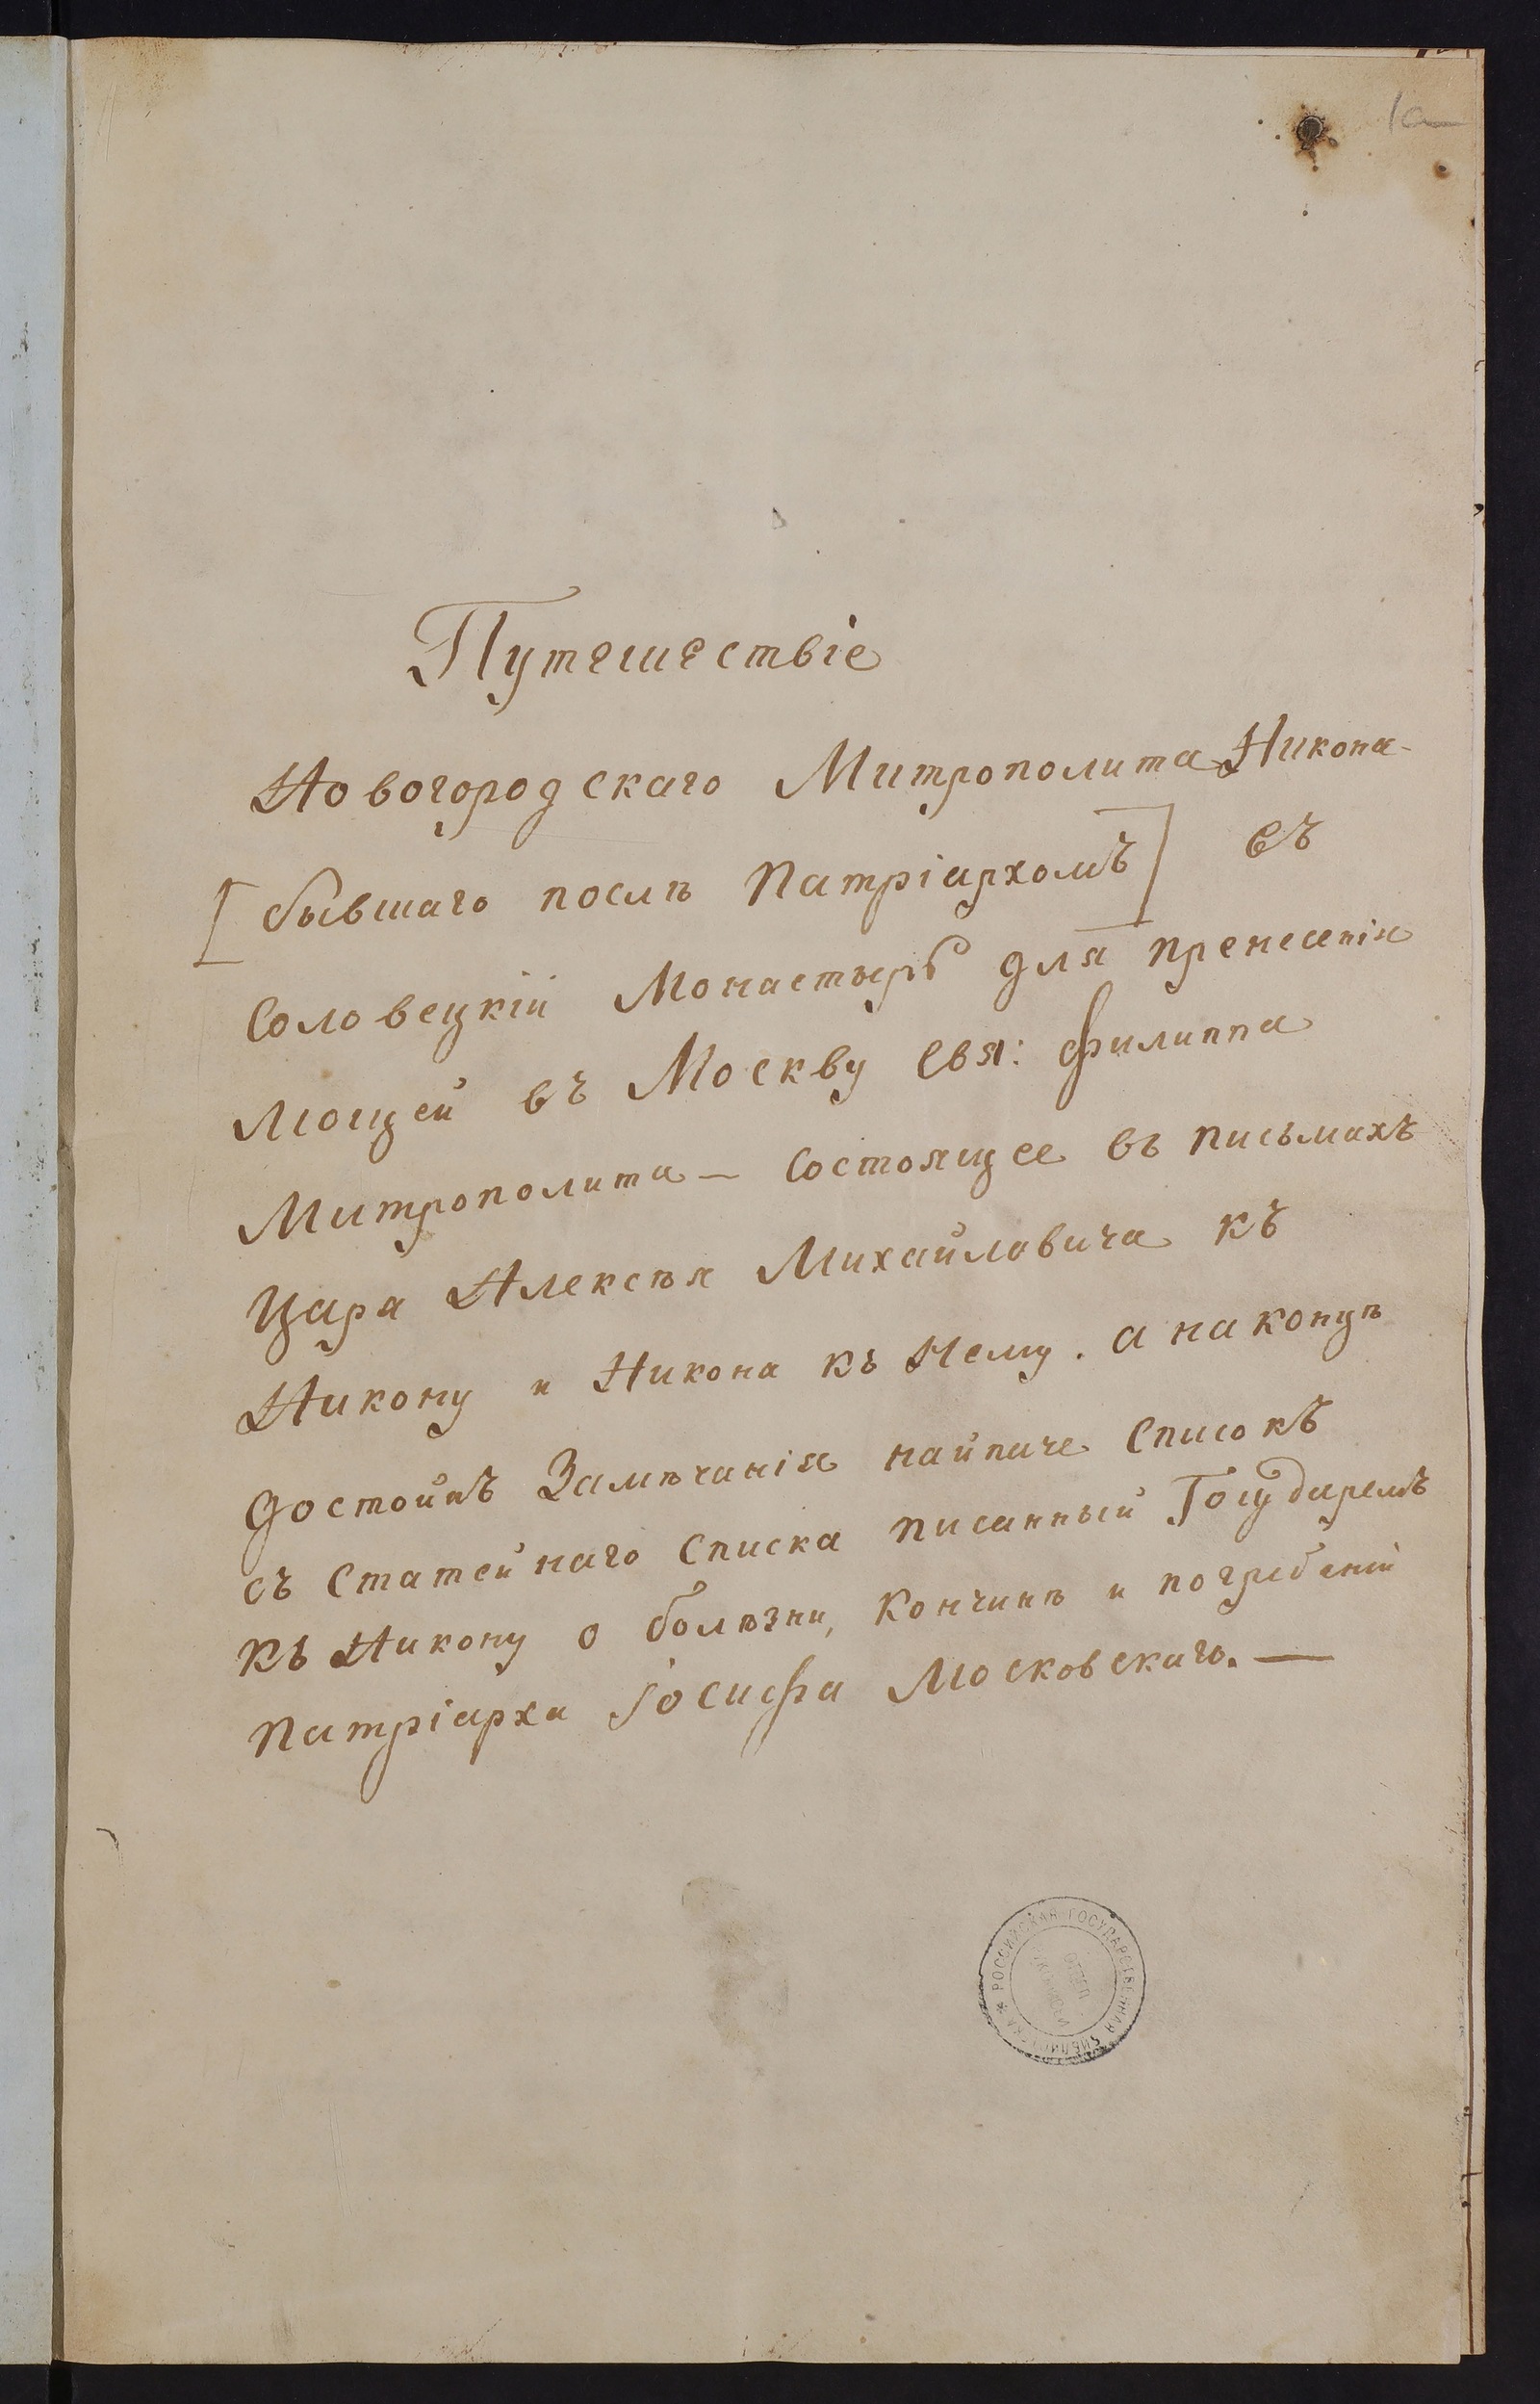 1а
Путешествіе
Новогородскаго Митрополита Никона
[бывшаго послѣ Патріархомъ] въ
Соловецкій Монастырь для пренесенія
Мощей въ Москву Свя: Филиппа
Митрополита — Состоящее въ письмахъ
Царя Алексѣя Михайловича къ
Никону и Никона къ Нему. а на концѣ
достоинъ Замѣчанія найпаче Списокъ
съ Статейнаго Списка писанный Государемъ
къ Никону о болѣзни, Кончинѣ и погребеніи
Патріарха Іосифа Московскаго. —
РОССИЙСКАЯ ГОСУДАРСТВЕННАЯ БИБЛИОТЕКА *
ОТДЕЛ